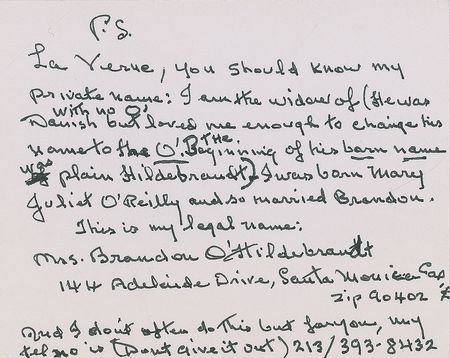 P.S.
La Verne, you should know my
private name: I am the widow of (He was
with no O'
Danish but loved me enough to change his
name to the O'. Beginning of his born name
THE
was plain Hildebrandt) I was born Mary
Juliet O'Reilly and so married Brandon.
This is my legal name:
Mrs. Brandon O'Hildebrandt
144 Adelaide Drive, Santa Monica Ca
Zip 90402
And I don't often do this but for you, my
tel no is (Don't give it out) 213/393-8432